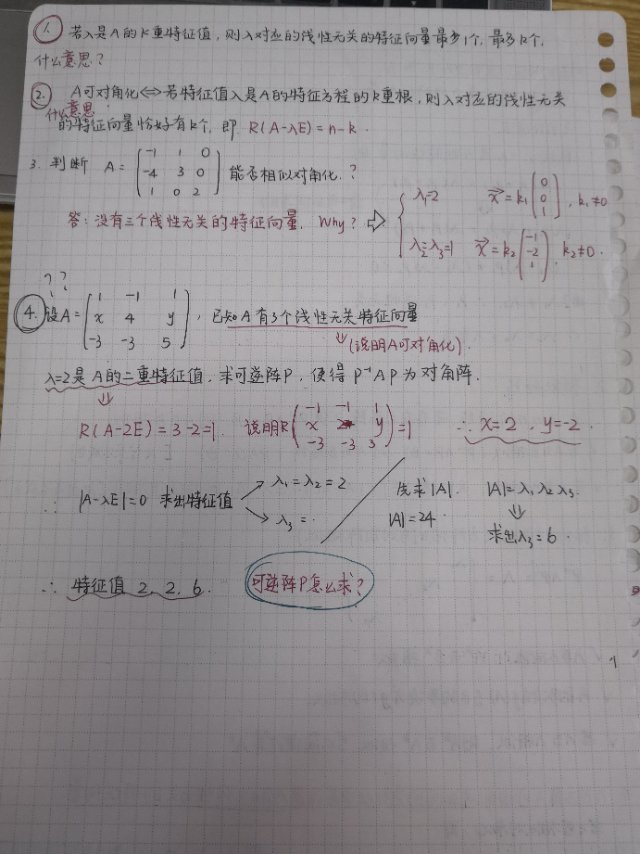 1. 若λ是A的k重特征值，则λ对应的线性无关的特征向量最少1个，最多k个，
什么意思？
2. A可对角化⇔若特征值λ是A的特征方程的k重根，则λ对应的线性无关
什么意思
的特征向量恰好有k个，即 R(A-λE)=n-k.
3. 判断 A= (-1 1 0; -4 3 0; 1 0 2) 能否相似对角化.？
答：没有三个线性无关的特征向量. Why? ⇨ { λ₁=2 x⃗=k₁(0; 0; 1), k₁≠0
λ₂=λ₃=1 x⃗=k₂(-1; -2; 1), k₂≠0.
？？
4. 设A= (1 -1 1; x 4 y; -3 -3 5), 已知A有3个线性无关特征向量
↓(说明A可对角化).
λ=2是A的二重特征值，求可逆阵P，使得P⁻¹AP为对角阵.
⇓
R(A-2E)=3-2=1. 说明R(-1 -1 1; x 2 y; -3 -3 3)=1 ∴ x=2, y=-2.
∴ |A-λE|=0 求出特征值 → λ₁=λ₂=2
→ λ₃=·
先求|A|. |A|=λ₁λ₂λ₃.
|A|=24. ⇓
求出λ₃=6.
∴ 特征值 2, 2, 6. 可逆阵P怎么求？